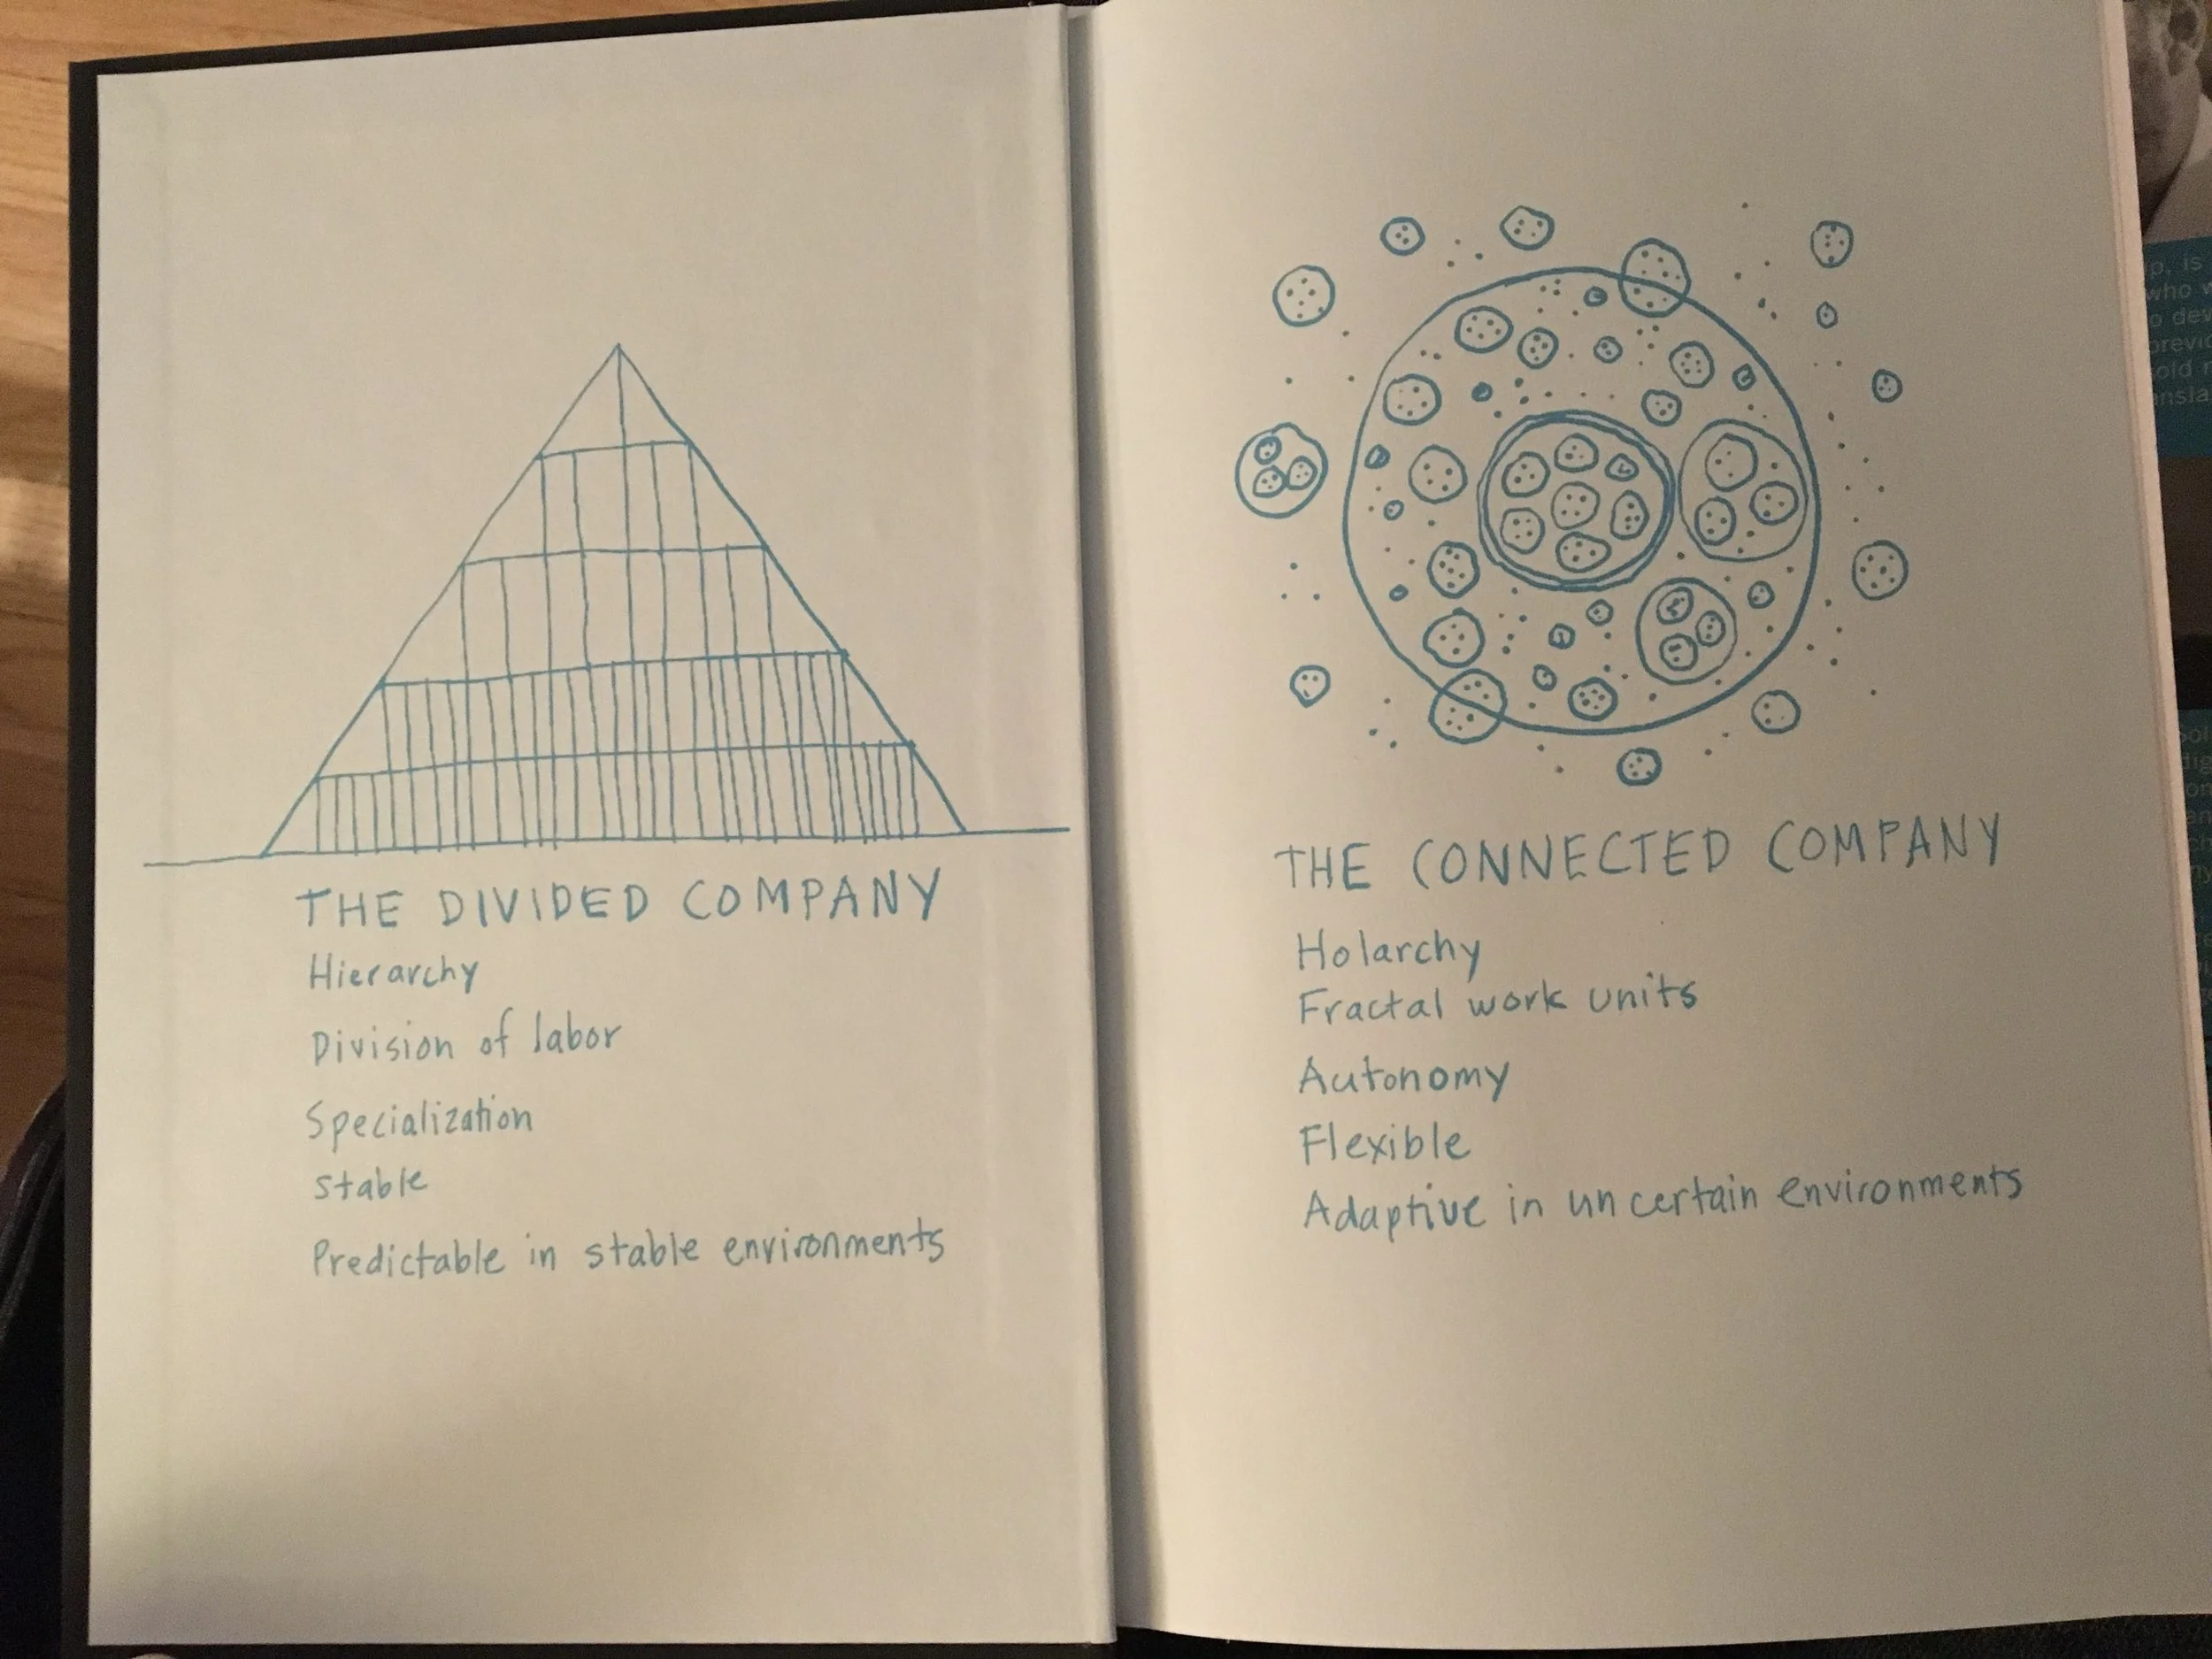 THE DIVIDED COMPANY
Hierarchy
Division of labor
Specialization
stable
Predictable in stable environments
THE CONNECTED COMPANY
Holarchy
Fractal work units
Autonomy
Flexible
Adaptive in uncertain environments
p, is
who
dev
previo
old